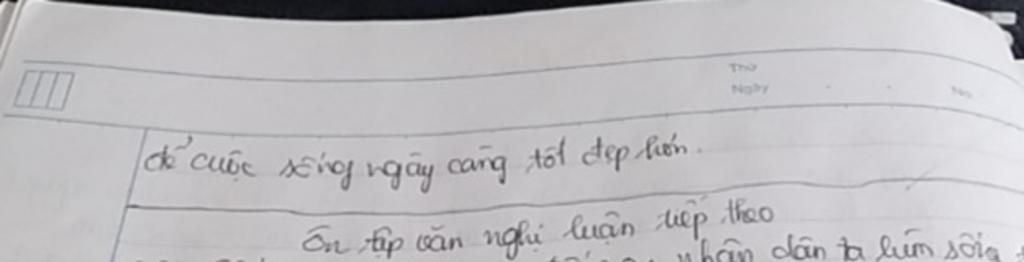 Thứ
Ngày
No
để cuộc sống ngày càng tốt đẹp hơn.
Ôn tập văn nghị luận tiếp theo
nhân dân ta